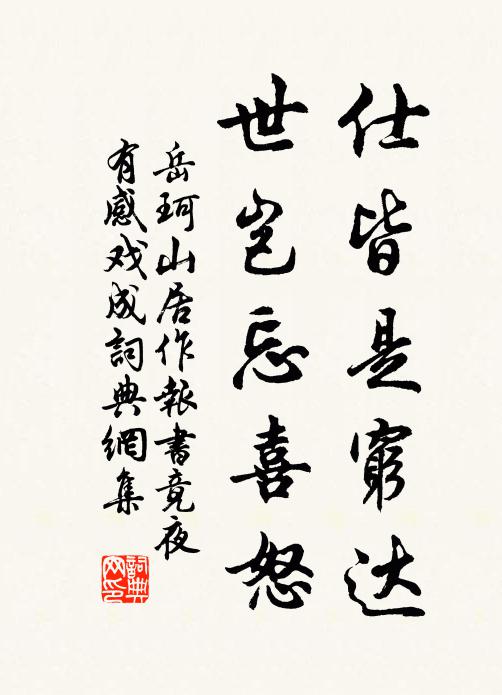 仕皆是窮达
世岂忘喜怒
岳珂山居作報書竟夜
有感戏成詞典網集
詞典网印